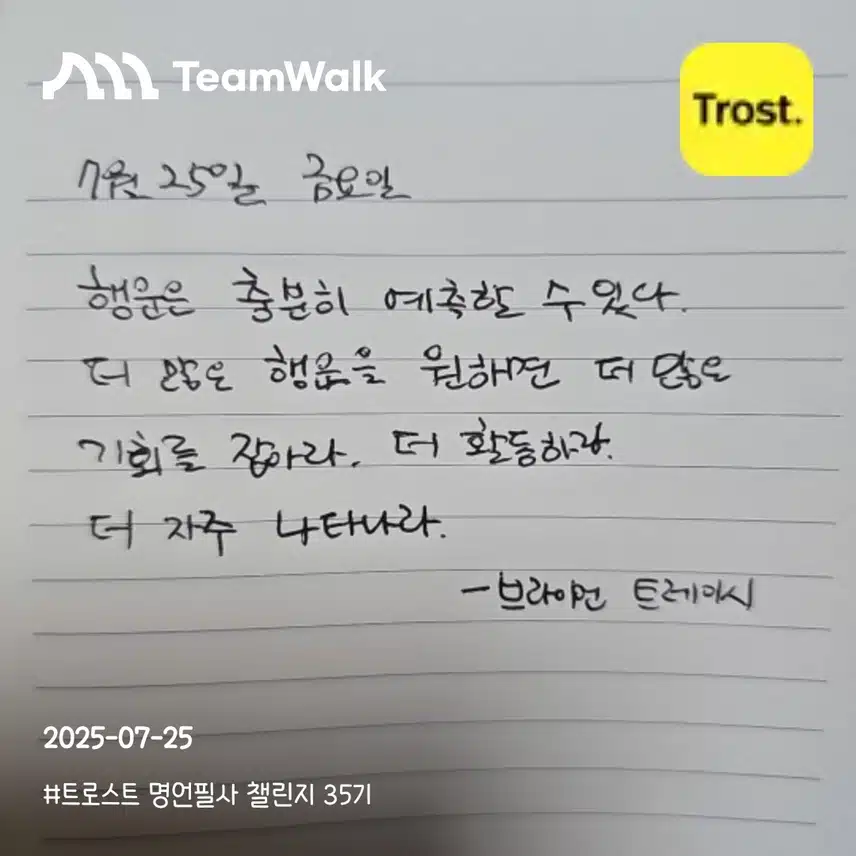 TeamWalk
Trost.
7월 25일 금요일
행운은 충분히 예측할 수 있다.
더 많은 행운을 원하면 더 많은
기회를 잡아라. 더 활동하라.
더 자주 나타나라.
- 브라이언 트레이시
2025-07-25
#트로스트 명언필사 챌린지 35기